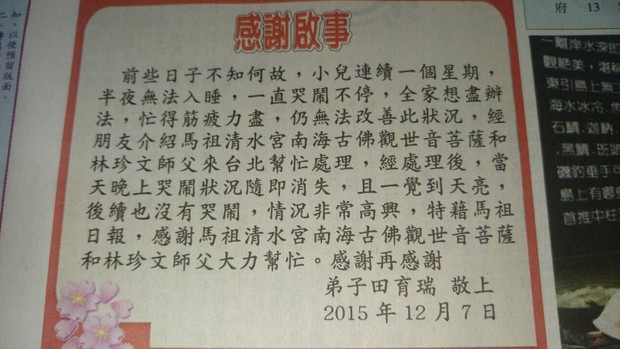 感謝啟事
前些日子不知何故，小兒連續一個星期，
半夜無法入睡，一直哭鬧不停，全家想盡辦
法，忙得筋疲力盡，仍無法改善此狀況，經
朋友介紹馬祖清水宮南海古佛觀世音菩薩和
林珍文師父來台北幫忙處理，經處理後，當
天晚上哭鬧狀況隨即消失，且一覺到天亮，
後續也沒有哭鬧，情況非常高興，特藉馬祖
日報，感謝馬祖清水宮南海古佛觀世音菩薩
和林珍文師父大力幫忙。感謝再感謝
弟子田育瑞 敬上
2015年12月7日
知，以便預留版面。
府 13
離岸水深
觀絕美，堪稱
東引島上無
海水冰冷，
石鯛、
黑鯛、斑
磯釣垂手可
島上有
首推中柱